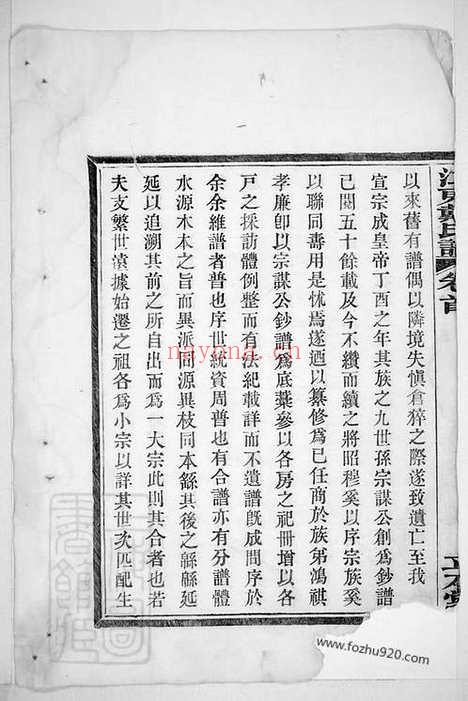 氏譜
卷首
以來舊有譜偶以隣境失愼倉猝之際遂致遺亡至我
宣宗成皇帝丁酉之年其族之九世孫宗謀公創爲鈔譜
已閱五十餘載及今不纘而續之將昭穆奚以序宗族奚
以聯同壽用是怵焉遂迺以纂修爲已任商於族弟鴻祺
孝廉卽以宗謀公鈔譜爲底葉參以各房之祀冊增以各
戸之採訪體例整而有法紀載詳而不遺譜旣成問序於
余余維譜者普也序世統資周普也有合譜亦有分譜體
水源木本之旨而異派同源異枝同本繇其後之緜緜延
延以追溯其前之所自出而爲一大宗此則其合者也若
夫支繁世滇據始遷之祖各爲小宗以詳其世次匹配生
nayona.cn
www.fozhu920.com